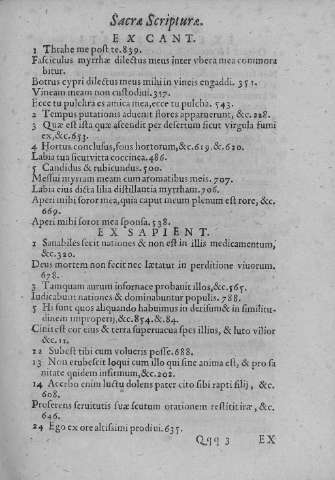 Sacræ Scripturæ.
EX CANT.
1 Thrahe me post te.839.
Fasciculus myrrhæ dilectus meus inter vbera mea commora
bitur.
Botrus cypri dilectus meus mihi in vineis engaddi. 351.
Vineam meam non custodiui.317.
Ecce tu pulchra es amica mea, ecce tu pulcha. 543.
2 Tempus putationis aduenit flores apparuerunt, &c.228.
3 Quæ est ista quæ ascendit per desertum sicut virgula fumi
ex,&c.653.
4 Hortus conclusus, fons hortorum,&c.619.&c.620.
Labia tua sicut vitta coccinea.486.
5 Candidus & rubicundus. 500.
Messui myrriam meam cum aromatibus meis. 707.
Labia eius dicta lilia distillantia myrrham.706.
Aperi mihi soror mea, quia caput meum plenum est rore, &c.
669.
Aperi mihi soror mea sponsa. 538.
EX SAPIENT.
1 Sanabiles fecit nationes & non est in illis medicamentum,
&c.320.
Deus mortem non fecit nec lætatur in perditione viuorum.
678.
3 Tamquam aurum in fornace probauit illos,&c.565.
Iudicabunt nationes & dominabuntur populis. 788.
5 Hi sunt quos aliquando habuimus in derisum& in similitu-
dinem improperij,&c.854.&.84.
Cinis est cor eius & terra superuacua spes illius, & luto vilior
&c.11.
12 Subest tibi cum volueris posse.688.
13 Non erubescit loqui cum illo qui sine anima est, & pro sa
nitate quidem infirmum,&c.202.
14 Acerbo enim luctu dolens pater cito sibi rapti filij, &c.
608.
Proferens seruitutis suæ scutum orationem restitit iræ, &c.
646.
24 Ego ex ore altissimi prodiui.635.
Qqq 3 EX